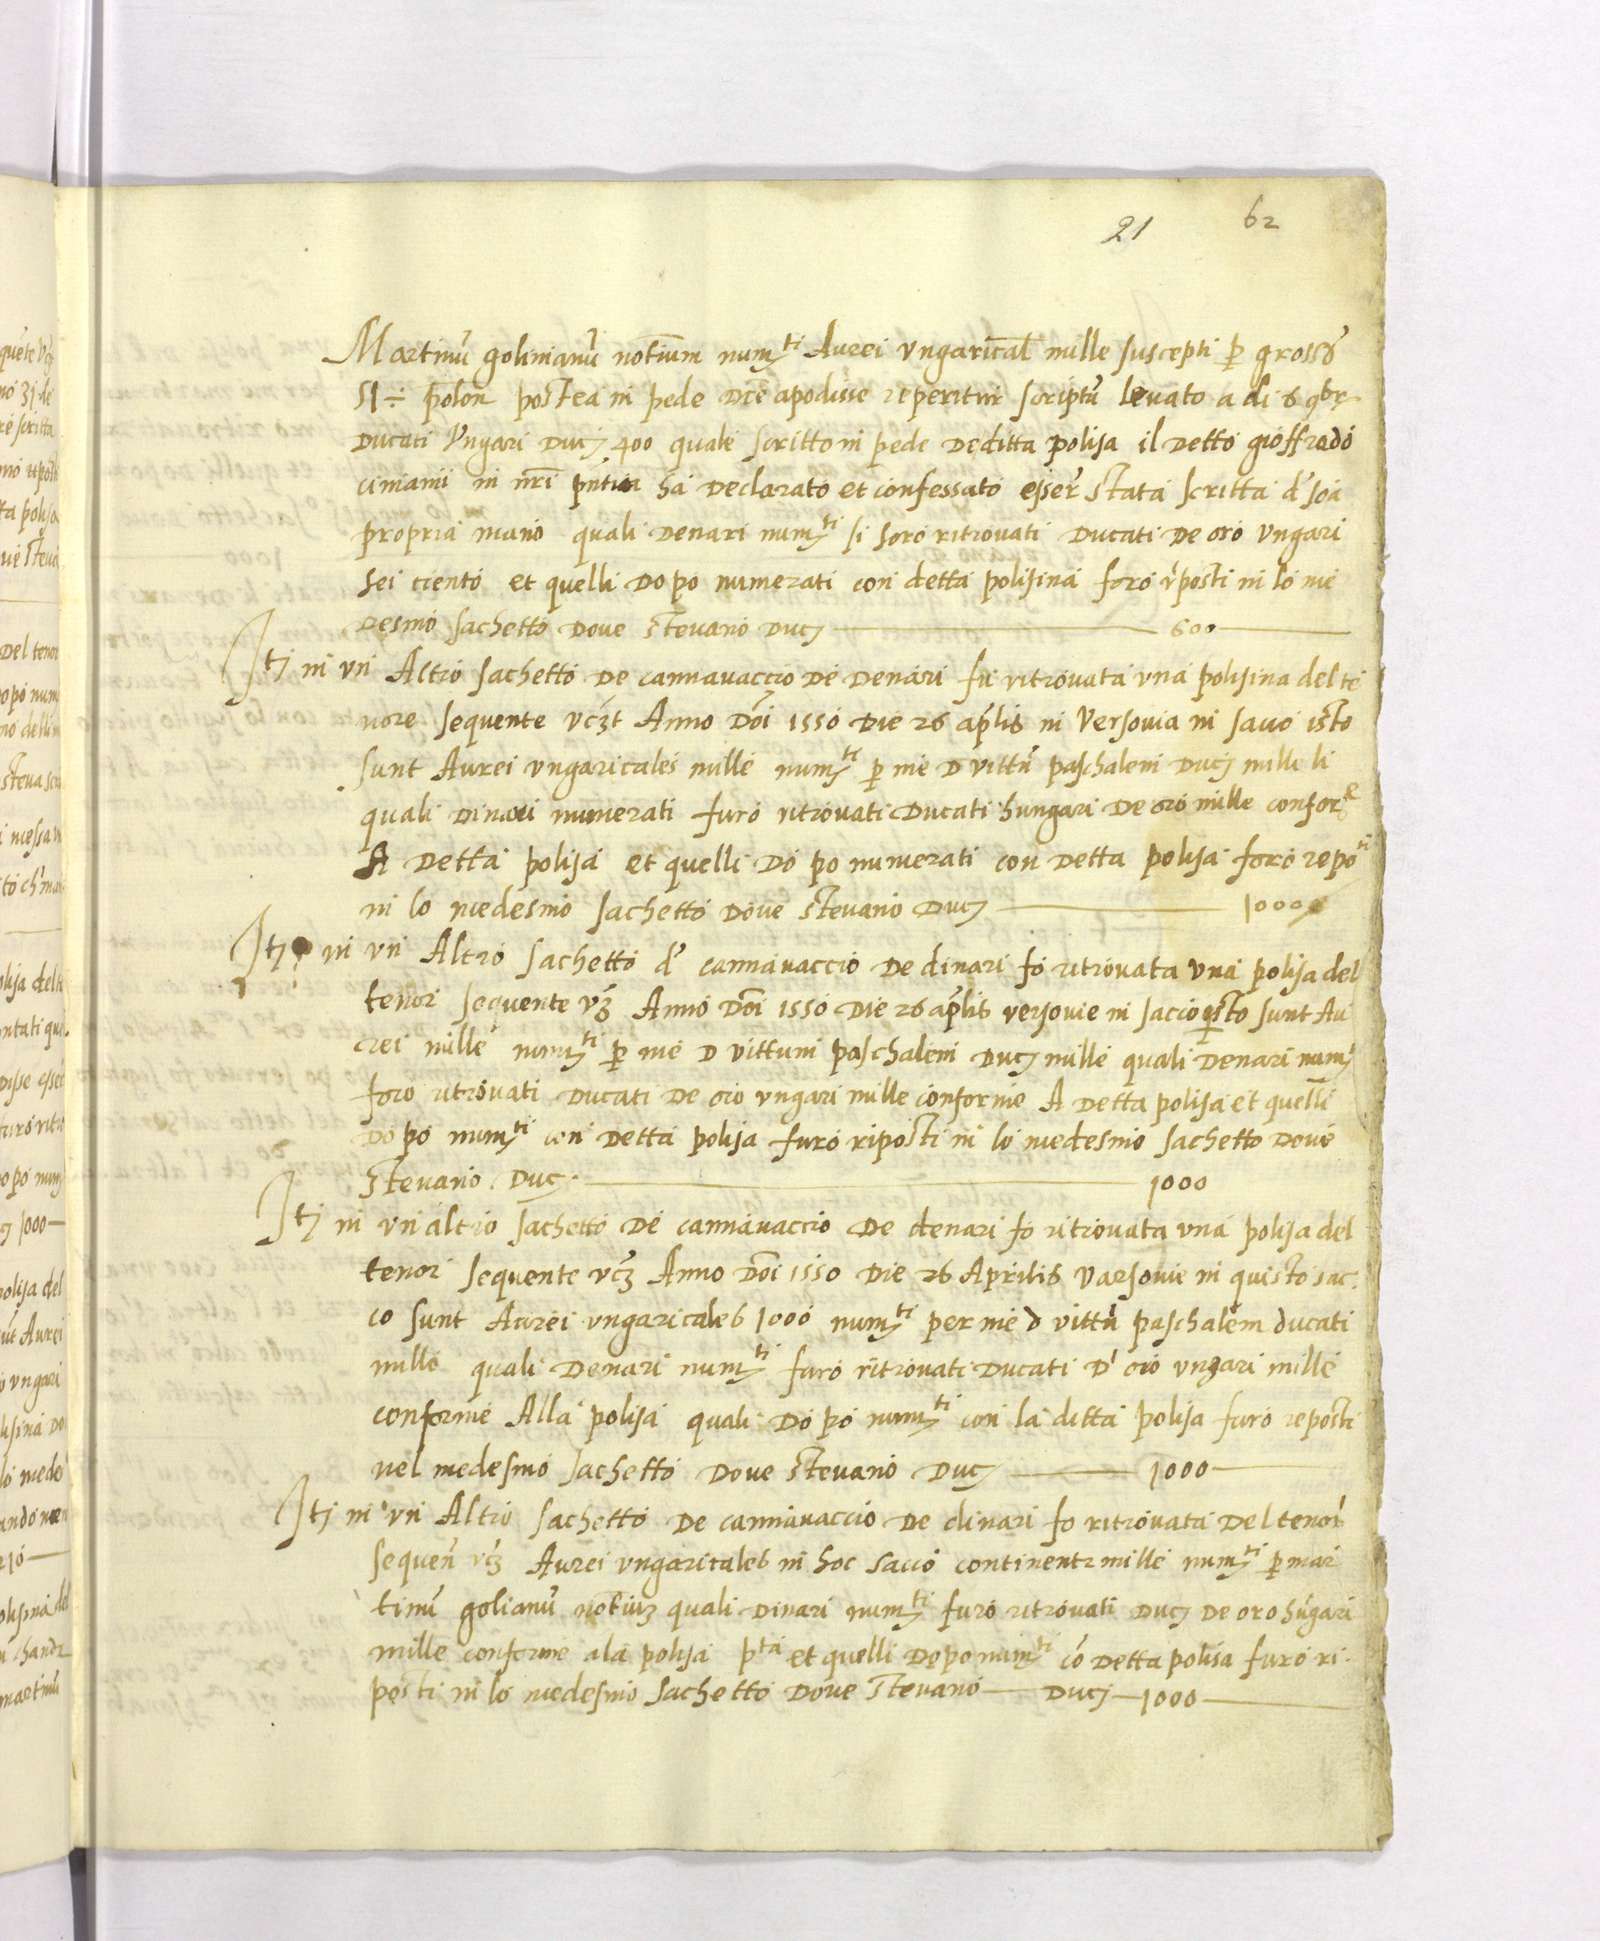 21 62
Martinũ golinianũ notium numti Aurei vngarical mille suscepti p grossos
51 ÷ polon postea in pede dce apodisie reperitur scriptũ levato a di 6 qbr
Ducati Vngari Ducj 400 quale scritto in pede de ditta polisa il detto gioffrado
in nrĩ pñtia ha declarato et confessato esser stata scritta d' soa
propria mano quali denari numti si foro ritrovati Ducati de oro Vngari
sei ciento et quelli dopo numerati con detta polisina foro riposti in lo me
desmo sachetto dove stevano Ducj 600
Itj in un Altro sachetto de cannavaccio de denari fu ritrovata una polisina del te
nore sequente vcz̃t Anno Dõi 1550 Die 26 aplis in Versovia in sacco isto
sunt Aurei vngaricales mille numti p me D vittũ paschalem Ducj mille li
quali dinari numerati furo ritrovati Ducati hungari de oro mille confor e
A detta polisa et quelli dopo numerati con detta polisa foro repoti
in lo medesmo sachetto dove stevano Ducj 1000
Itj in un Altro sachetto d' cannavaccio de dinari fo ritrovata una polisa del
tenor sequente vz̃ Anno Dõi 1550 Die 26 aplis versovie in sacco isto sunt Au
rei mille numti p me D vittum paschalem Ducj mille quali denari numj
foro ritrovati Ducati de oro vngari mille conforme A detta polisa et quelli
dopo numti con detta polisa furo riposti in lo medesmo sachetto dove
stevano Ducj 1000
Itj in un altro sachetto de cannavaccio de denari fo ritrovata una polisa del
tenor sequente vcz̃ Anno Dõi 1550 Die 26 Aprilis Varsovie in quisto sac
co sunt Aurei vngaricales 1000 numti per me D vittũ paschalem ducati
mille quali denari numti furo ritrovati Ducati d' oro vngari mille
conforme Alla polisa quali dopo numti con la ditta polisa furo reposti
nel medesmo sachetto dove stevano Ducj 1000
Itj in un Altro sachetto de cannavaccio de dinari fo ritrovata del tenor
sequeñ vcz̃ Aurei vngaricales in hoc sacco continentr mille numti p mar
tinũ golianũ notiuz quali dinari numti furo ritrovati Ducj de oro hũgari
mille conforme a la polisa pta et quelli dopo numti cõ detta polisa furo ri
posti in lo medesmo sachetto dove stevano Ducj 1000